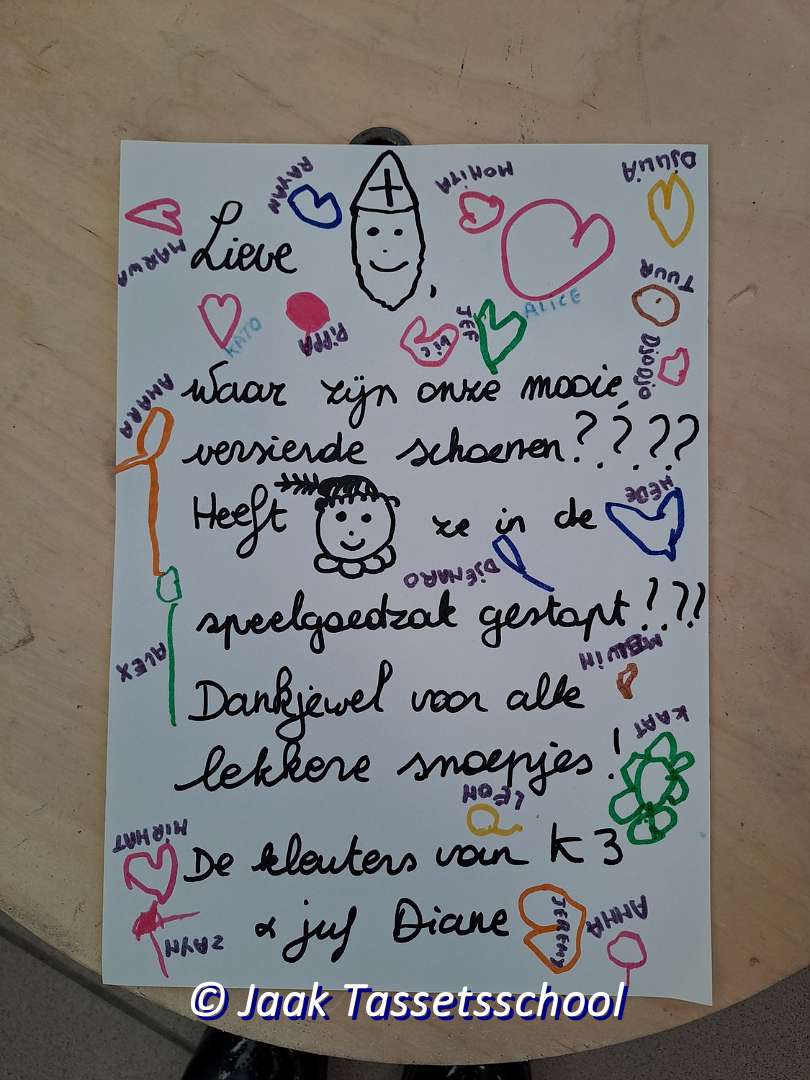 RAYAN
MONITA
DJULIA
MARWA
Lieve ,
TUUR
KATO
PIPPA
VIC
JEF
ALICE
DJODJO
AMARA
waar zijn onze mooie,
versierde schoenen????
Heeft ze in de
HEBE
DJENARO
speelgoedzak gestopt???
ALEX
MELVIN
Dankjewel voor alle
KAAT
lekkere snoepjes!
LEON
MIRHAT
De kleuters van K3
ZAYN
& juf Diane
JEREMY
ANNA
© Jaak Tassetsschool